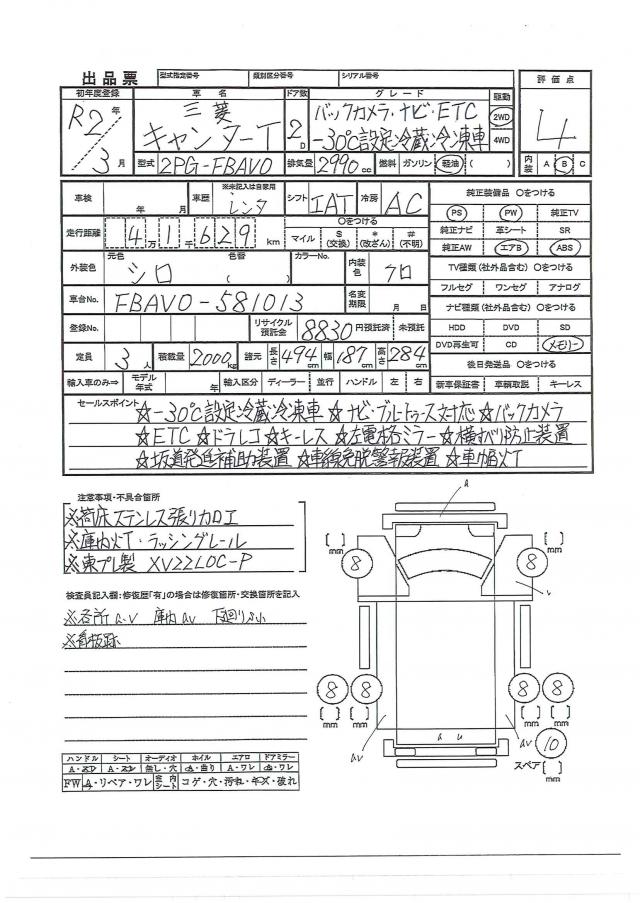 出品票 型式指定番号 類別区分番号 シリアル番号
初年度登録 車名 ドア数 グレード 駆動 評価点
R2年/3月 三菱 キャンターT 2D バックカメラ・ナビ・ETC 2WD 4
-30℃設定冷蔵冷凍車 4WD
型式 2PG-FBAV0 排気量 2990cc 燃料 ガソリン 軽油 ( ) 内装 A B C
車検 年 月 車歴 ※未記入は自家用 レンタ シフト IAT 冷房 AC 純正装備品 〇をつける
走行距離 4 1 6 2 9 万 千 km 〇をつける PS PW 純正TV
マイル $(交換) *(改ざん) #(不明) 純正ナビ 革シート SR
純正AW エアB ABS
外装色 元色 シロ 色替 ( ) カラーNo. 内装色 クロ TV種類(社外品含む) 〇をつける
フルセグ ワンセグ アナログ
車台No. FBAV0-581013 名変期限 月 日 ナビ種類(社外品含む) 〇をつける
登録No. リサイクル預託金 8830円預託済 未預託 HDD DVD SD
DVD再生可 CD メモリー
定員 3人 積載量 2000kg 諸元 長さ 494cm 幅 187cm 高さ 284cm 後日発送品 〇をつける
輸入車のみ⇒ モデル年式 年 輸入区分 ディーラー 並行 ハンドル 左 右 新車保証書 車輌取説 キーレス
セールスポイント ☆-30℃設定冷蔵冷凍車 ☆ナビ・ブルートゥース対応 ☆バックカメラ
☆ETC ☆ドラレコ ☆キーレス ☆左電格ミラー ☆横すべり防止装置
☆坂道発進補助装置 ☆車線逸脱警報装置 ☆車幅灯
注意事項・不具合箇所
※荷床ステンレス張り加工
※庫内灯・ラッシングレール
※東プレ製 XV22LOC-P
検査員記入欄:修復歴「有」の場合は修復箇所・交換箇所を記入
※各所a.v 庫内av 下廻りサビ
※看板跡
a
[ ] mm 8 8 [ ] mm
v
8 8 8 8
[ ] [ ] [ ] [ ]
mm mm mm mm
a u
av av 10
スペア [ ] mm
ハンドル シート オーディオ ホイル エアロ ドアミラー
A・スレ A・スレ 無し・穴 A・曲り A・ワレ A・ワレ
FW A・リペア・ワレ 室内シート コゲ・穴・汚れ・キズ・破れ